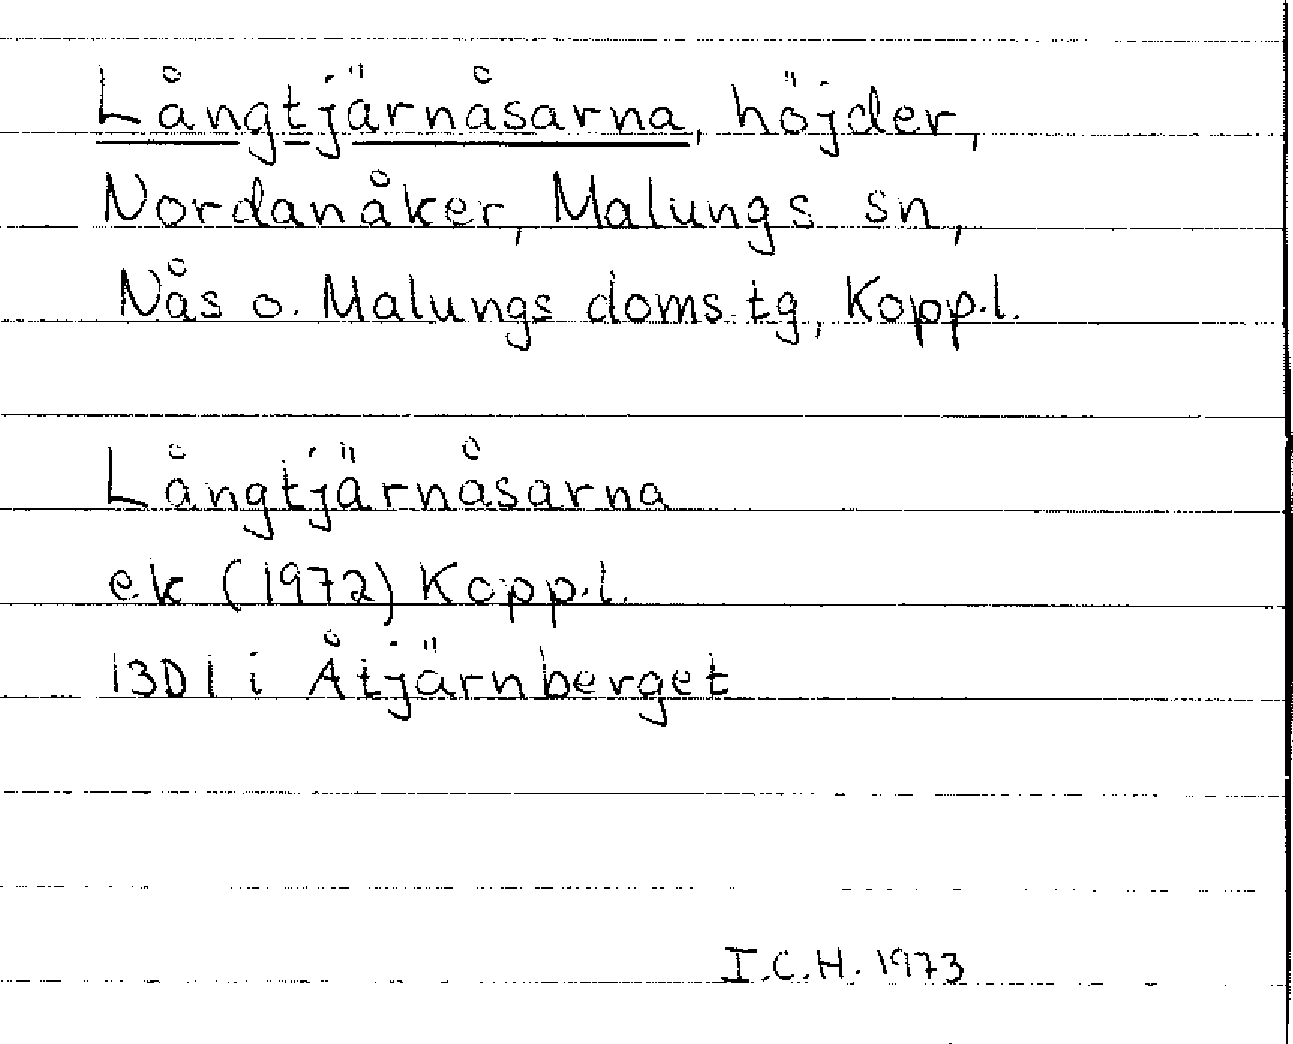 Långtjärnåsarna, höjder,
Nordanåker, Malungs sn,
Nås o. Malungs doms.tg, Kopp.l.
Långtjärnåsarna
ek (1972) Kopp.l.
13D1i Åtjärnberget
I.C.H. 1973